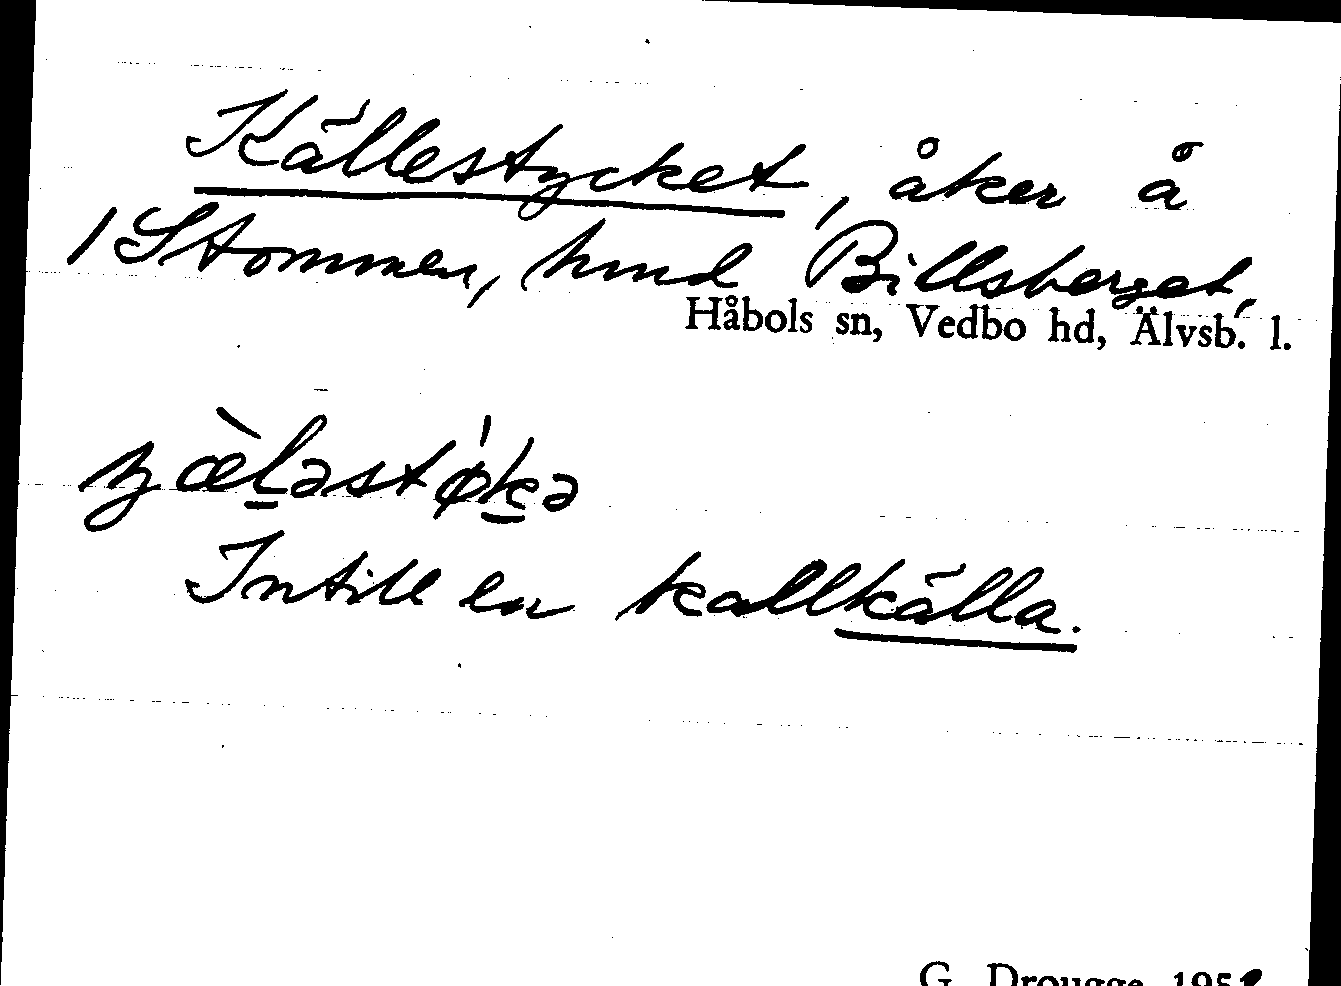 Källestycket, åker å
1 Stommen, hmd Billsberget,
Håbols sn, Vedbo hd, Älvsb. l.
ʒæ̀l̠əstø̍k̠ə
Intill en kallkälla.
G. Drougge 195